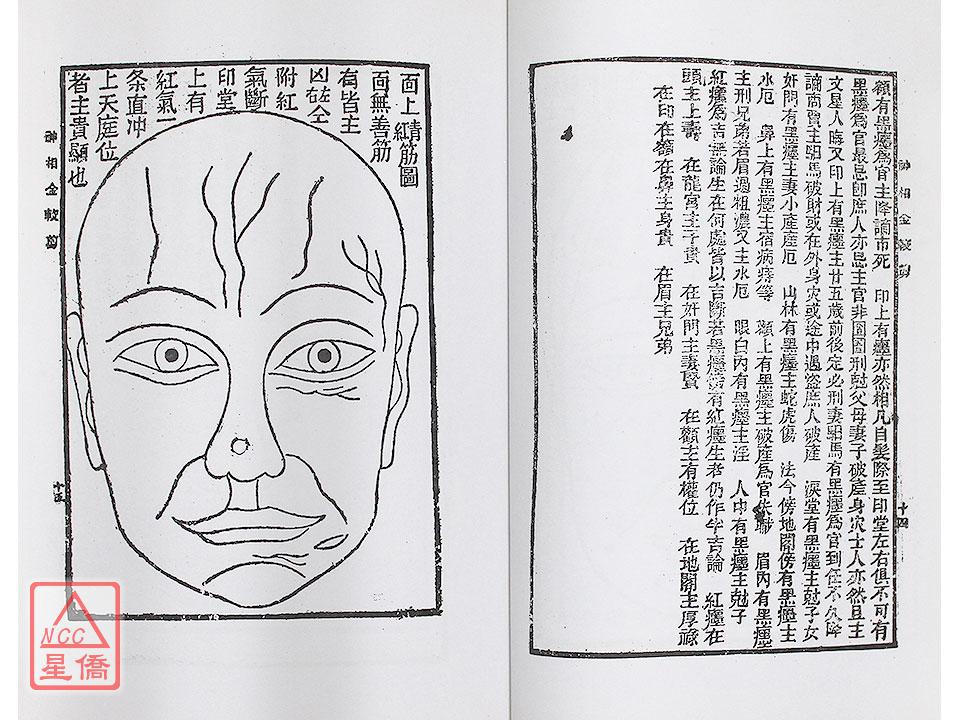 神相金較剪
十四
額有黑癦為官主降謫市死　印上有癦亦然相凡自髮際至印堂左右俱不可有
黑癦為官最忌即庶人亦忌主官非囹圄刑尅父母妻子破產身灾士人亦然且主
文星人晦又印上有黑癦主廿五歲前後定必刑妻馹馬有黑癦為官到任不久降
謫商賈主馹馬破財或在外身灾或途中遇盜庶人破產　淚堂有黑癦主尅子女
奸門有黑癦主妻小產產厄　山林有黑癦主蛇虎傷　法令傍地閣傍有黑癦主
水厄　鼻上有黑癦主宿病痔等　顴上有黑癦主破產為官失職　眉內有黑癦
主刑兄弟若眉過粗濃又主水厄　眼白內有黑癦主淫　人中有黑癦主尅子
紅癦為吉無論生在何處皆以吉斷若黑癦傍有紅癦生者仍作半吉論　紅癦在
頭主上壽　在龍宮主子貴　在奸門主妻賢　在顴主有權位　在地閣主厚祿
在印在額在鼻主身貴　在眉主兄弟
面上紅青筋圖
面無善筋
有皆主
凶茲仝
附紅
氣斷
印堂
上有
紅氣一
条直冲
上天庭位
者主貴顯也
神相金較剪
十五
NCC
星僑